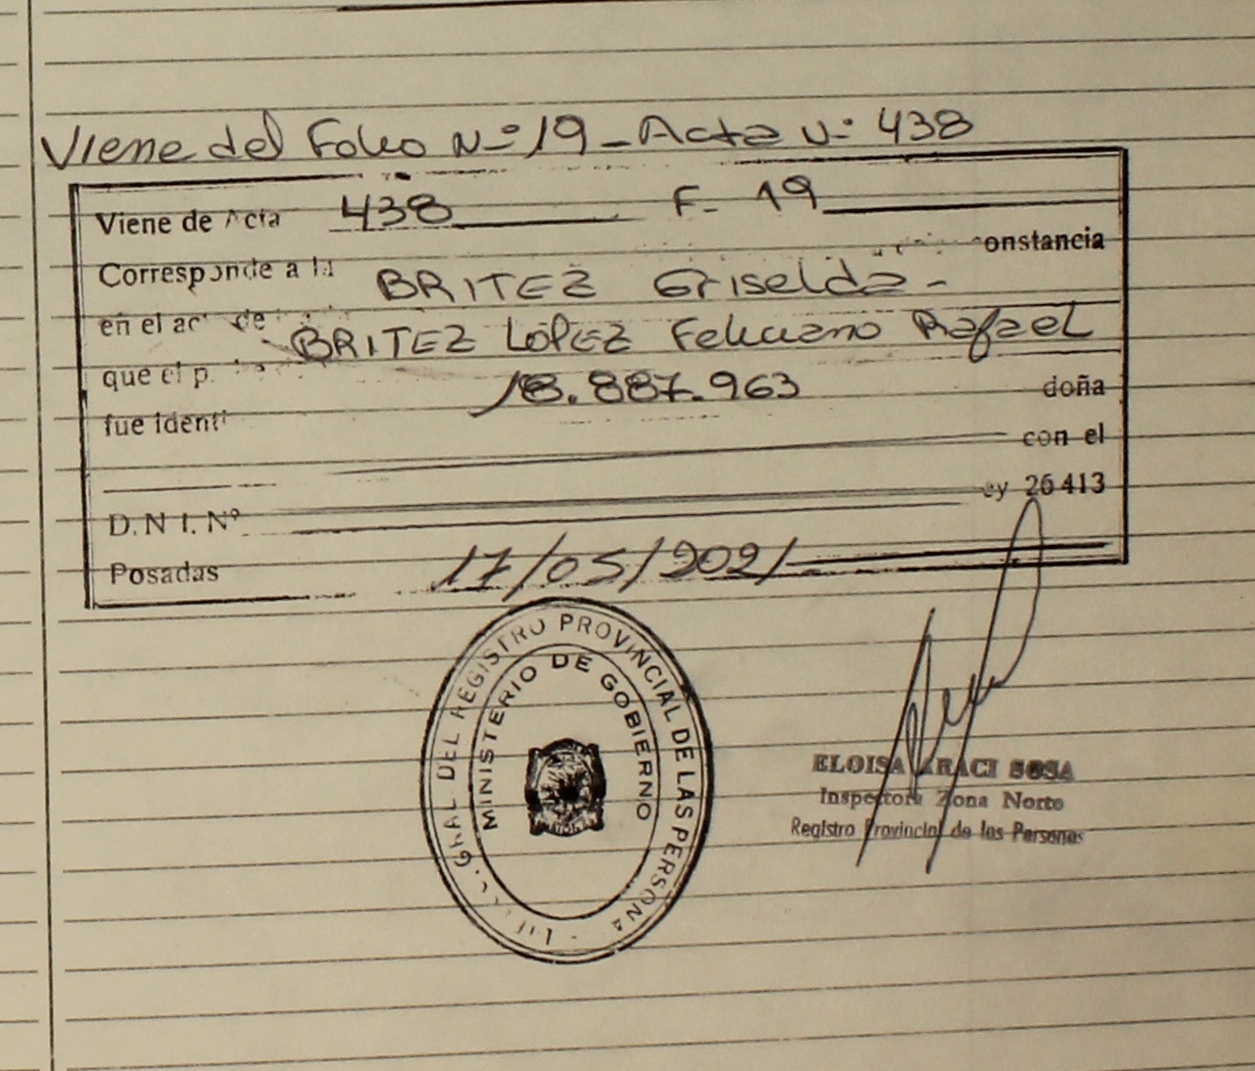 Viene del Folio N° 19 - Acta N° 438
Viene de Acta 438 F- 19
Corresponde a la constancia
BRITEZ Griselda -
en el de
BRITEZ LÓPEZ Feliciano Rafael
que el
18.887.963 doña
fue
con el
26 413
D.N.I. Nº
Posadas 17/05/2021
GRAL DEL REGISTRO PROVINCIAL DE LAS PERSONA
MINISTERIO DE GOBIERNO
ELOISA ARACI SOSA
Inspectora Zona Norte
Registro Provincial de las Personas